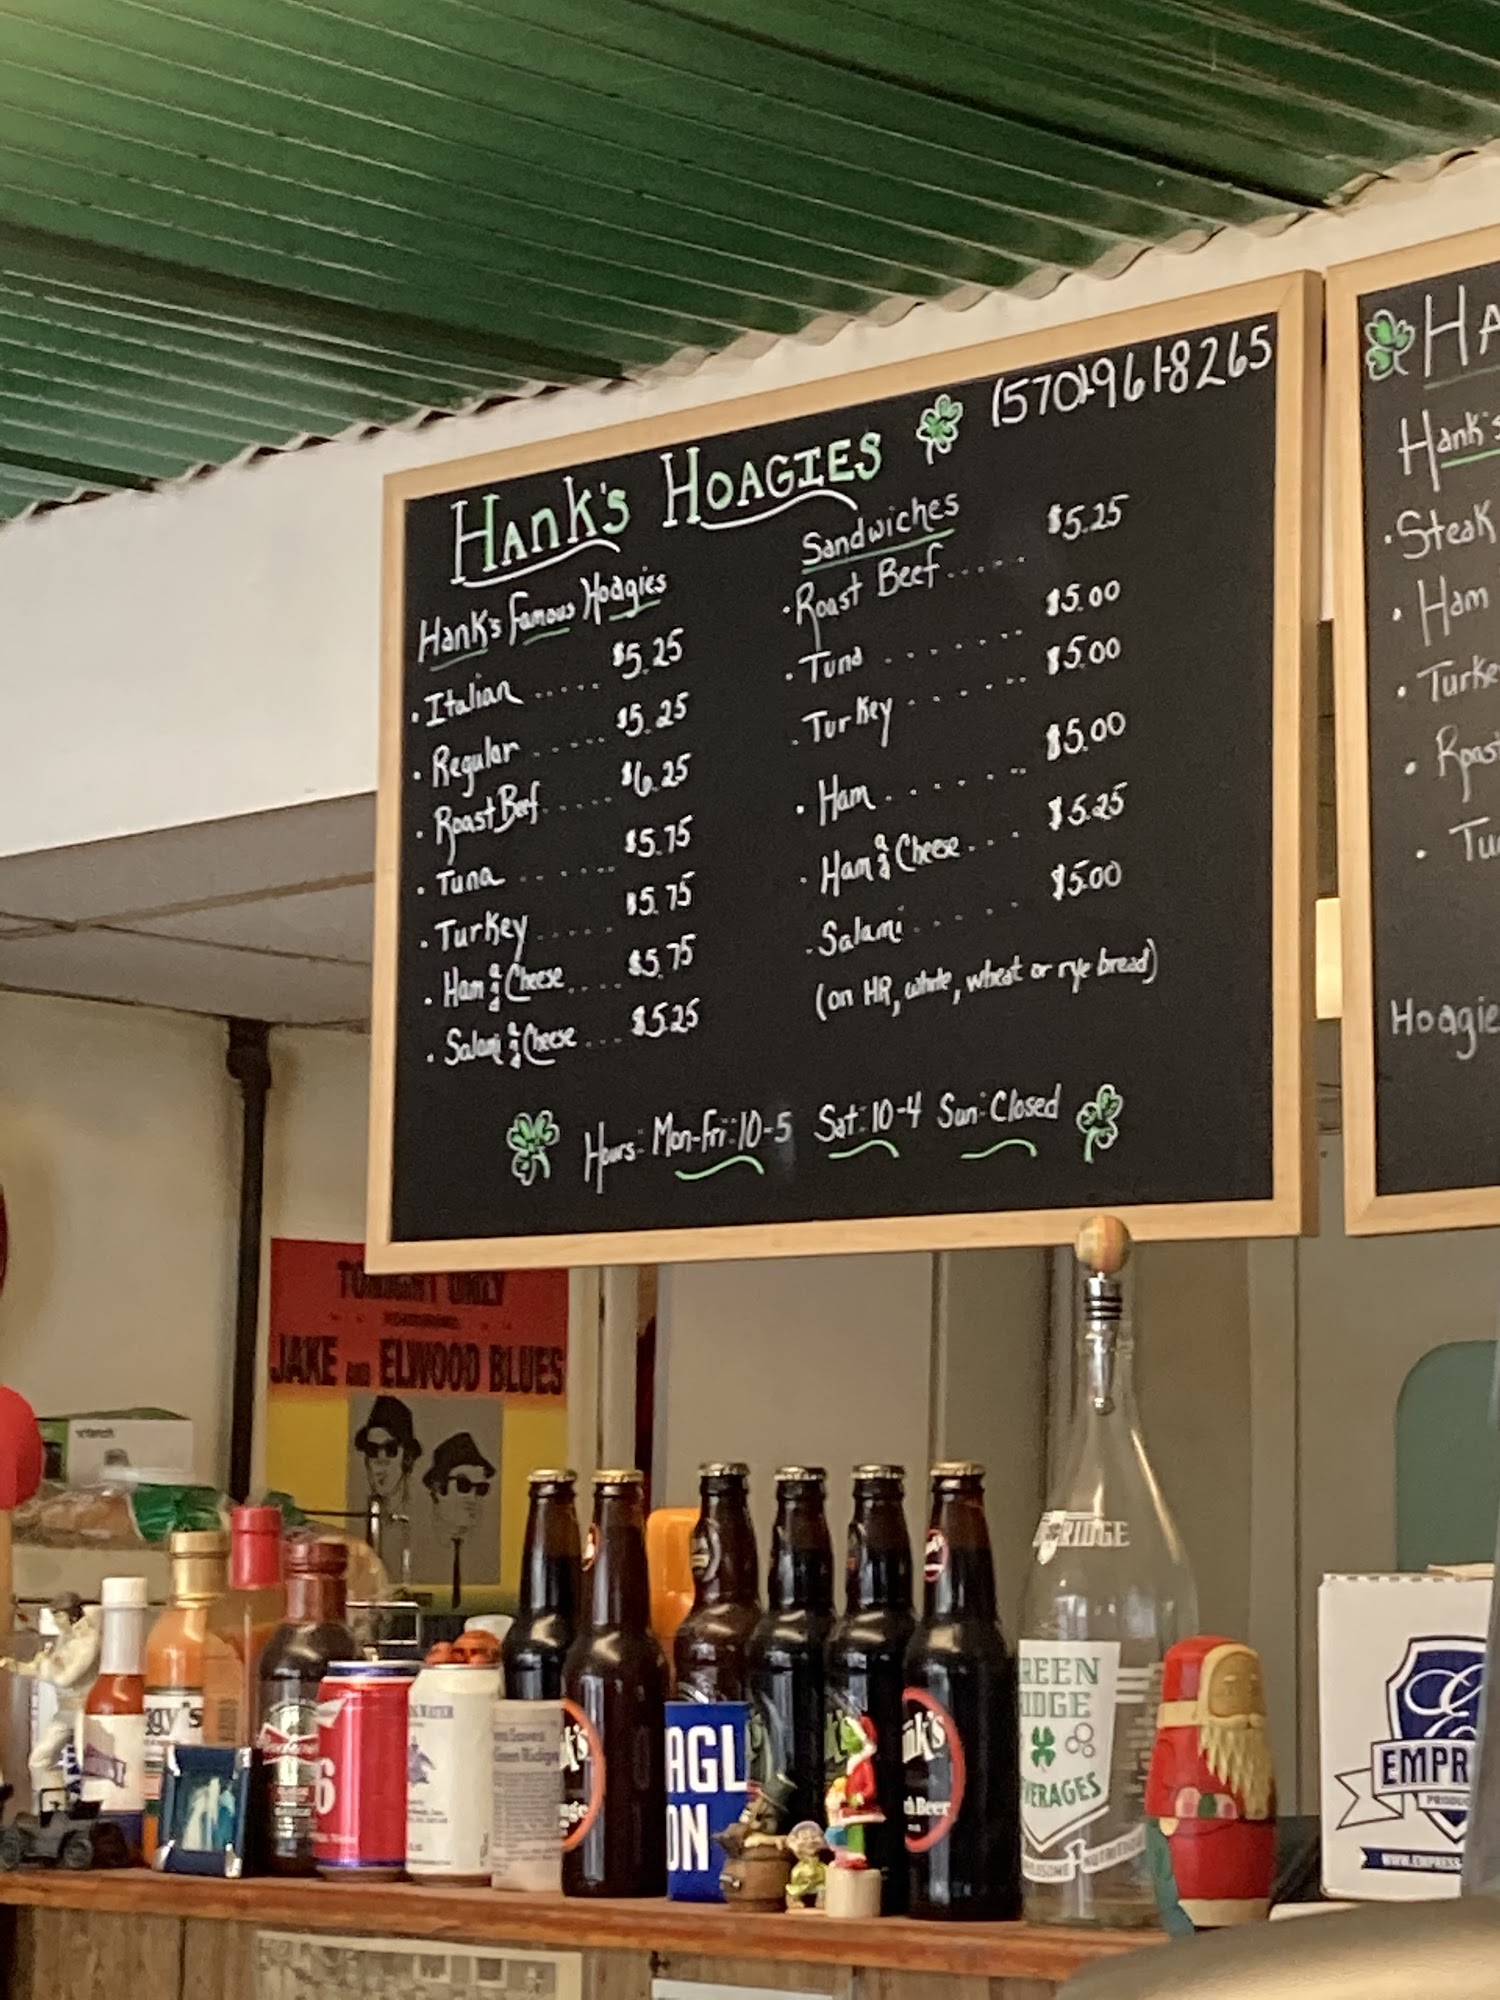 (570)-961-8265
Hank's Hoagies
Hank's Famous Hoagies
• Italian ..... $5.25
• Regular ...... $5.25
• Roast Beef ...... $6.25
• Tuna ....... $5.75
• Turkey ...... $5.75
• Ham and Cheese .... $5.75
• Salami and Cheese ... $5.25
Sandwiches
• Roast Beef ..... $5.25
• Tuna ....... $5.00
• Turkey ...... $5.00
• Ham ....... $5.00
• Ham and Cheese ... $5.25
• Salami ...... $5.00
(on HR, white, wheat or rye bread)
Hours: Mon-Fri: 10-5 Sat: 10-4 Sun: Closed
Ha
Hank's
• Steak
• Ham
• Turke
• Roast
• Tu
Hoagie
TONIGHT ONLY
JAKE AND ELWOOD BLUES
ggy's
6
WATER
Green Ridge
k's
nge
AGL
ON
nk's
ch Beer
RIDGE
REEN
IDGE
VERAGES
EMPR
PRODUC